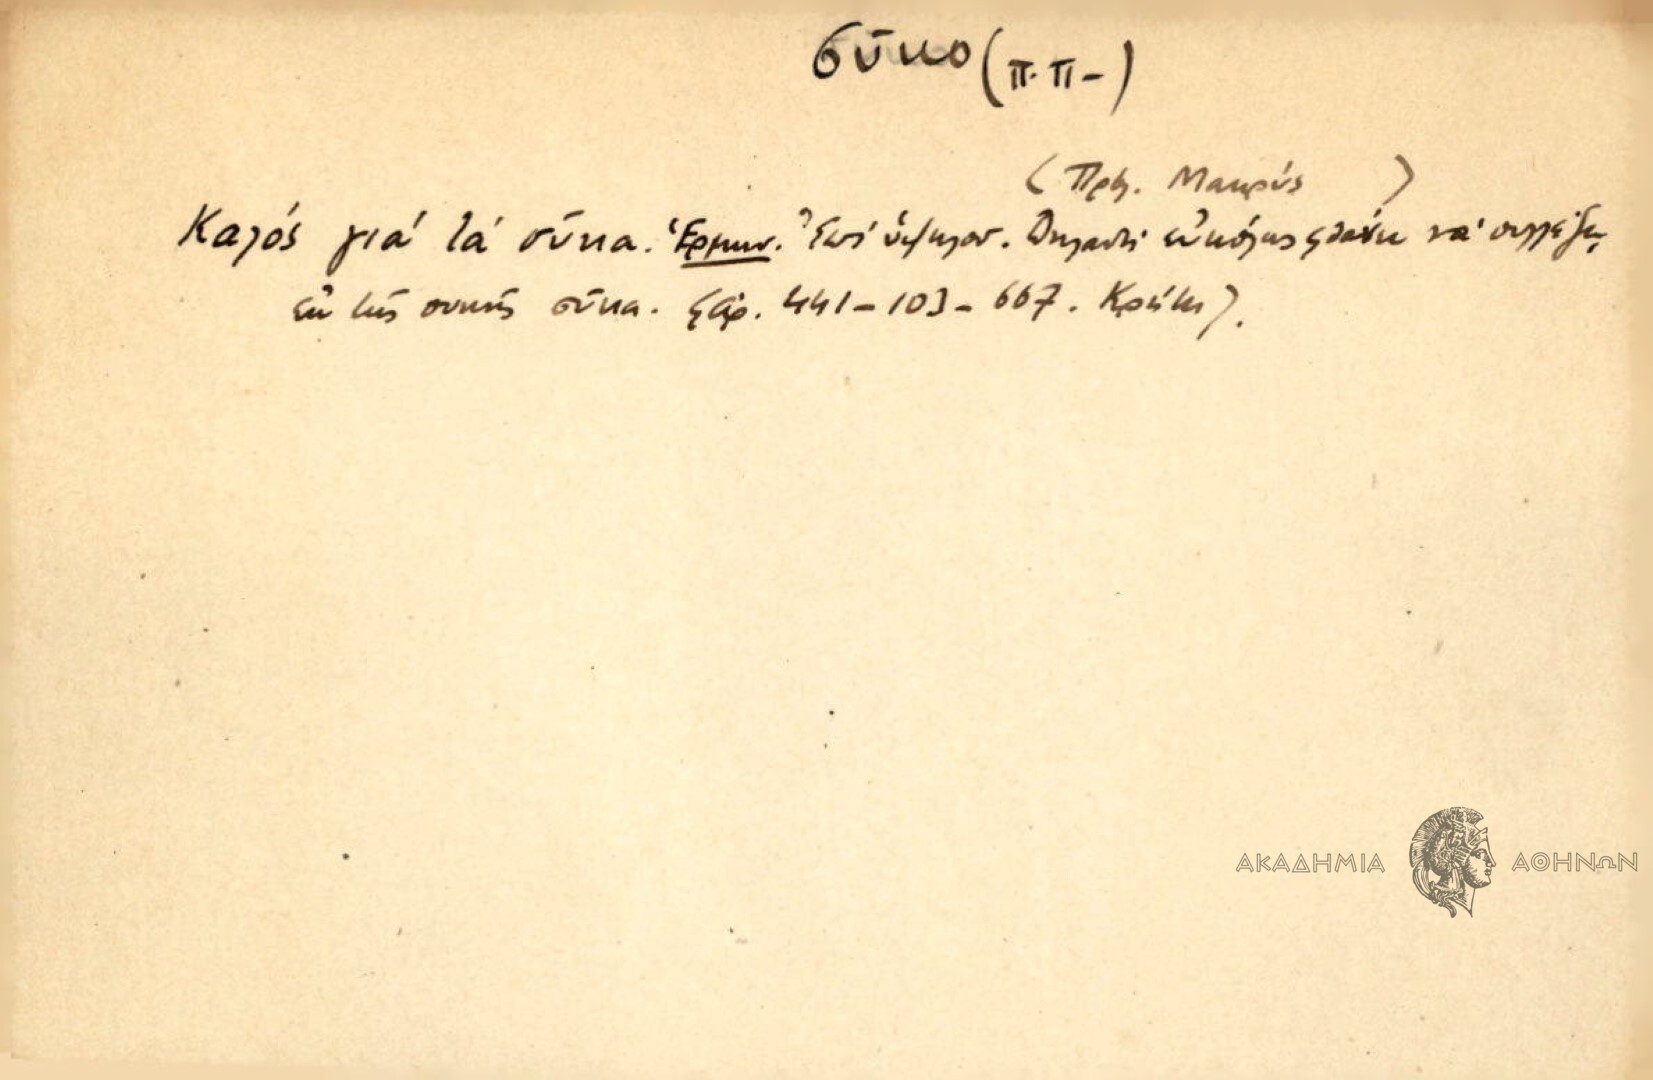 σῦκο (π.π-)
(Πρβ. Μακρύς )
Καλός γιά τά σῦκα. Ἑρμην. Ἐπί ὑψηλοῦ. Δηλαδή εὐκόλως φθάνει νά συλλέξῃ
ἐκ τῆς συκῆς σῦκα. (Ἀρ. 441-103-667. Κρήτη).
ΑΚΑΔΗΜΙΑ ΑΘΗΝΩΝ